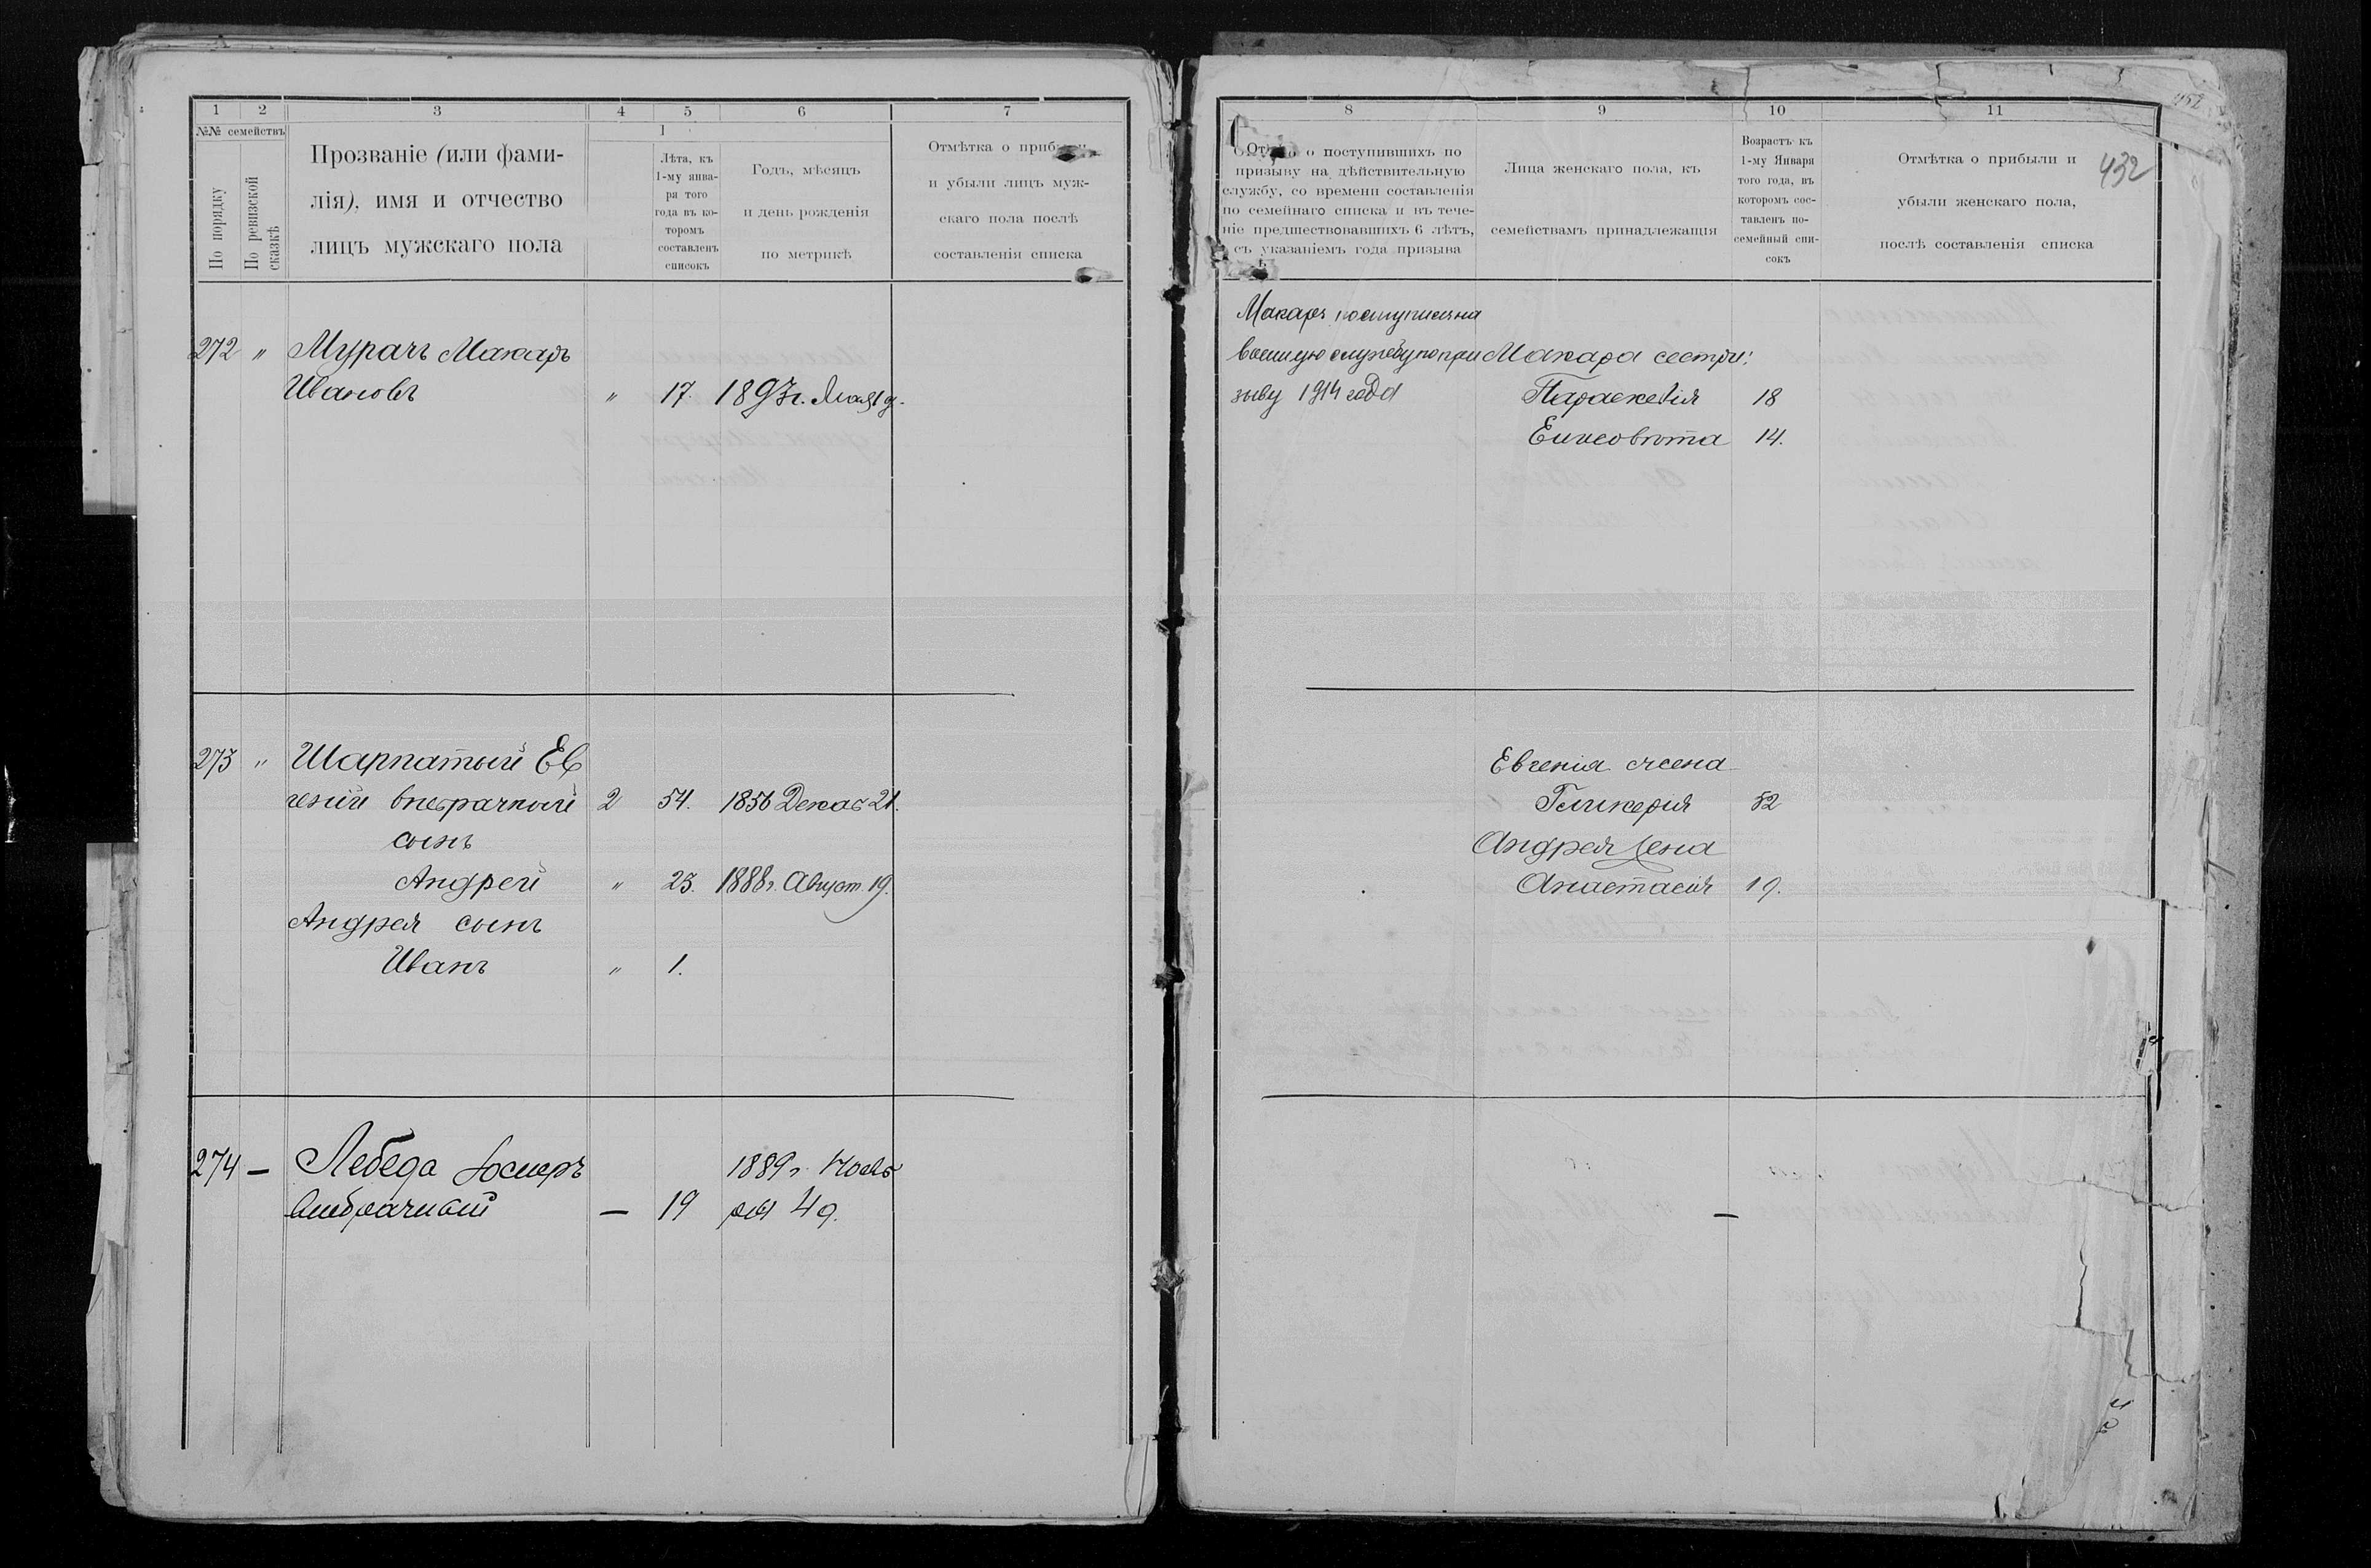 1 2 3 4 5 6 7
№№ семействъ
По порядку
По ревизской сказкѣ
Прозваніе (или фами-
лія), имя и отчество
лицъ мужскаго пола
1
Лѣта, къ
1-му янва-
ря того
года въ ко-
торомъ
составленъ
списокъ
Годъ, мѣсяцъ
и день рожденія
по метрикѣ
Отмѣтка о
и убыли лицъ муж-
скаго пола послѣ
составленія списка
272 " Мурачъ Макаръ
Ивановъ " 17. 1893г.
273 " Шарпатый Ев
геній внебрачный 2 54. 1856 Декаб 21.
сынъ
Андрей " 23. 1888г. Август. 19.
Андрея сынъ
Иванъ " 1.
274 — Лебеда 1889г. Нояб
внебрачный — 19 ря 4 д.
8 9 10 11
432
о поступившихъ по
призыву на дѣйствительную
службу, со времени составленія
по семейнаго списка и въ тече-
ніе предшествовавшихъ 6 лѣтъ,
съ указаніемъ года призыва
Лица женскаго пола, къ
семействамъ принадлежащія
Возрастъ къ
1-му Января
того года, въ
которомъ сос-
тавленъ по-
семейный спи-
сокъ
Отмѣтка о прибыли и
убыли женскаго пола,
послѣ составленія списка
Макаръ поступилъ на
военную службу по при Макара сестры:
зыву 1914 года Параскевія 18
14.
Евгенія жена
Гликерія 52
Андрея жена
Анастасія 19.
—